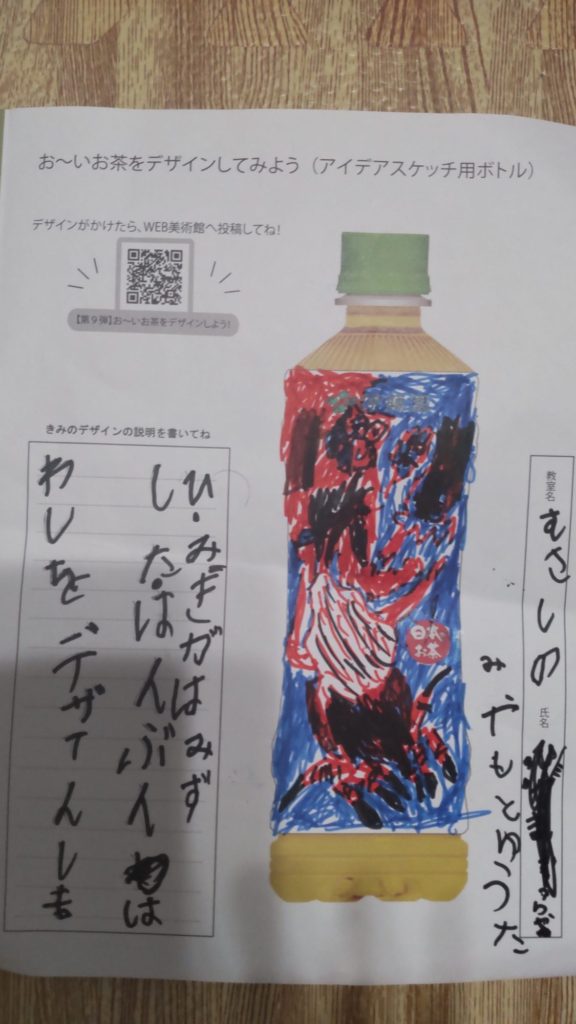 お～いお茶をデザインしてみよう（アイデアスケッチ用ボトル）
デザインがかけたら、WEB美術館へ投稿してね！
【第９弾】お～いお茶をデザインしよう！
きみのデザインの説明を書いてね
ひ・みぎがはみず
した・はんぶんは
わしをデザインしま
教室名
むさしの
氏名
みやもとゆうた
お茶